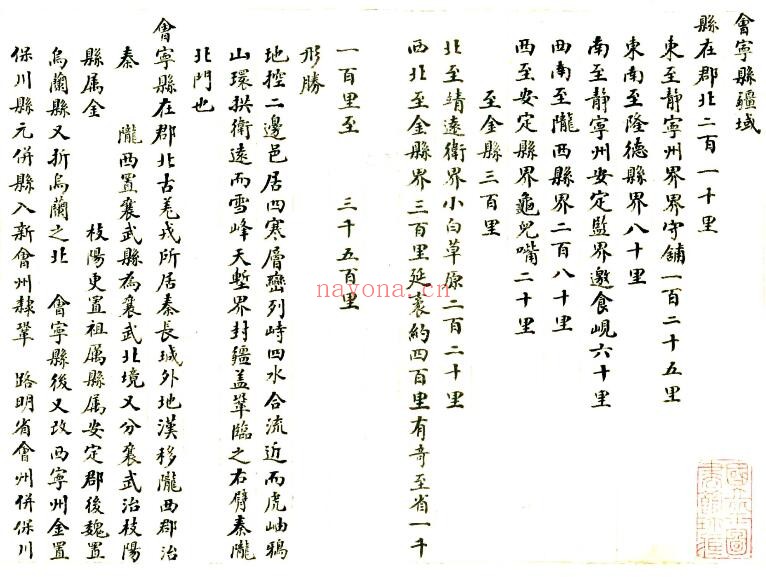 會寧縣疆域
縣在郡北二百一十里
東至靜寧州界界守鋪一百二十五里
東南至隆德縣界八十里
南至靜寧州安定監界邀食峴六十里
西南至隴西縣界二百八十里
西至安定縣界龜兒嘴二十里
至金縣三百里
北至靖遠衛界小白草原二百二十里
西北至金縣界三百里延袤約四百里有奇至省一千
一百里至 三千五百里
形勝
地控二邊邑居四寒層巒列峙四水合流近而虎岫鴉
山環拱衛遠而雪峰天塹界封疆蓋鞏臨之右臂秦隴
北門也
會寧縣在郡北古羌戎所居秦長城外地漢移隴西郡治
秦 隴西置襄武縣為襄武北境又分襄武治枝陽
縣属金 枝陽更置祖属縣属安定郡後魏置
烏蘭縣又折烏蘭之北 會寧縣後又改西寧州金置
保川縣元併縣入新會州隸鞏 路明省會州併保川
nayona.cn